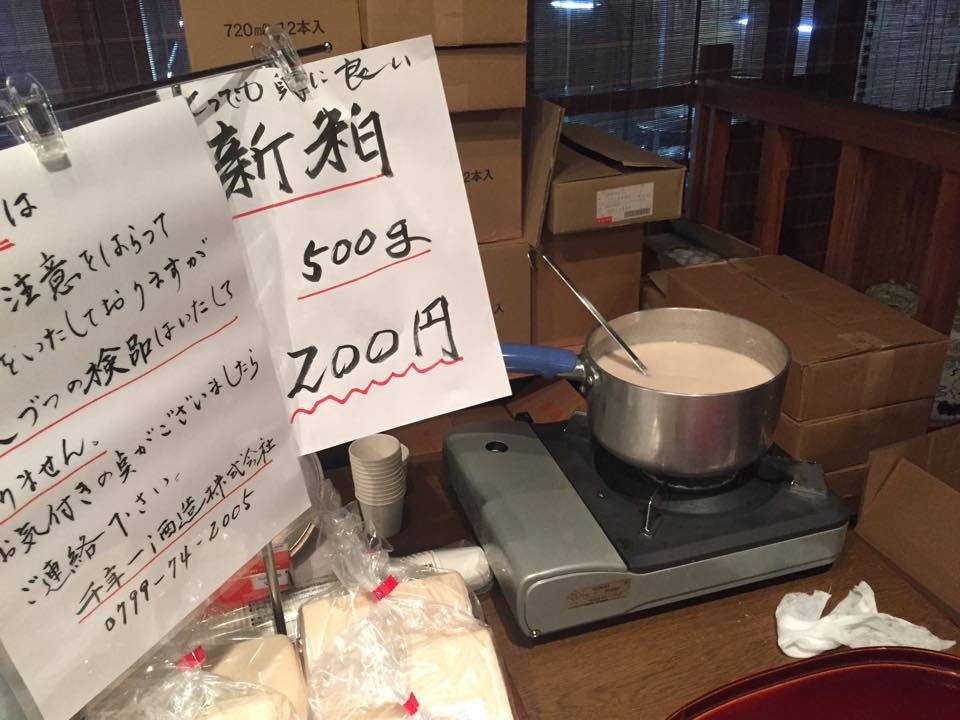 720ml 12本入
2本入
とっても身に良い
新粕
500g
200円
は
注意をはらって
をいたしておりますが
づつの検品はいたして
りません。
お気付きの点がございましたら
ご連絡下さい。
千年一酒造株式会社
0799-74-2005